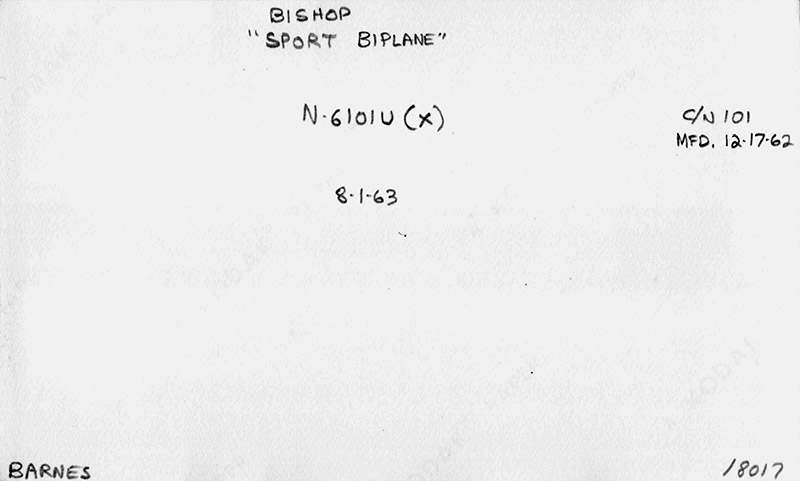 BISHOP
"SPORT BIPLANE"
N-6101U (X)
C/N 101
MFD. 12-17-62
8-1-63
BARNES
18017